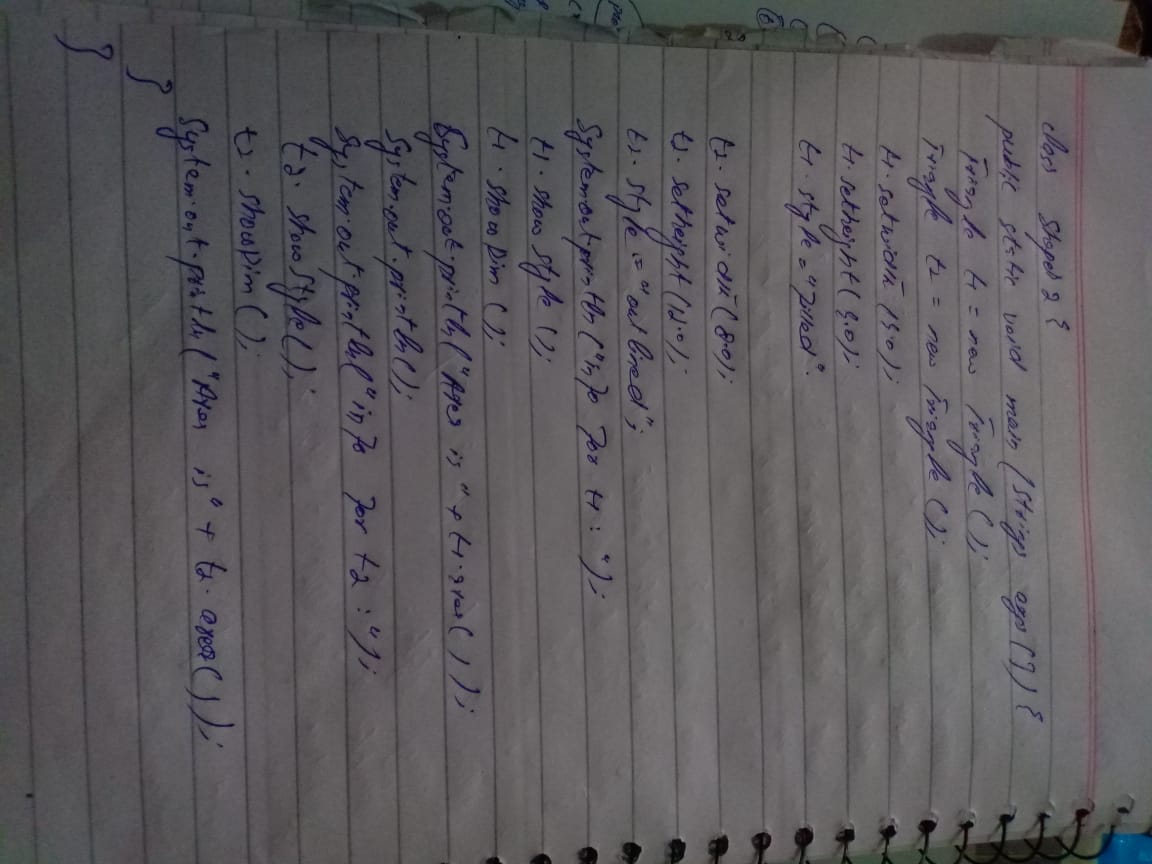 class Shapes2{
public static void main (Strings args[]) {
Triangle t1 = new Triangle ();
Triangle t2 = new Triangle ();
t1. setwidth (9.0);
t1. setheight (9.0);
t1. style = "filled".
t2. setwidth (8.0);
t2. setheight (12.0);
t2. style = "outlined";
System.out.println ("info for t1: ");
t1. show style ();
t1. showDim ();
System.out.println ("Area is " + t1. area ( ) );
System.out.println ();
System.out.println (" info for t2 : ");
t2. showstyle ();
t2. showDim ();
System.out.println ("Area is" + t2. area( ) );
}
}